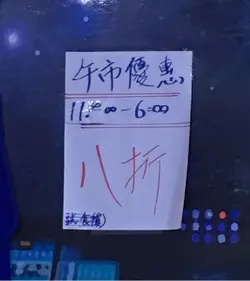 午市優惠
11:00-6:00
八折